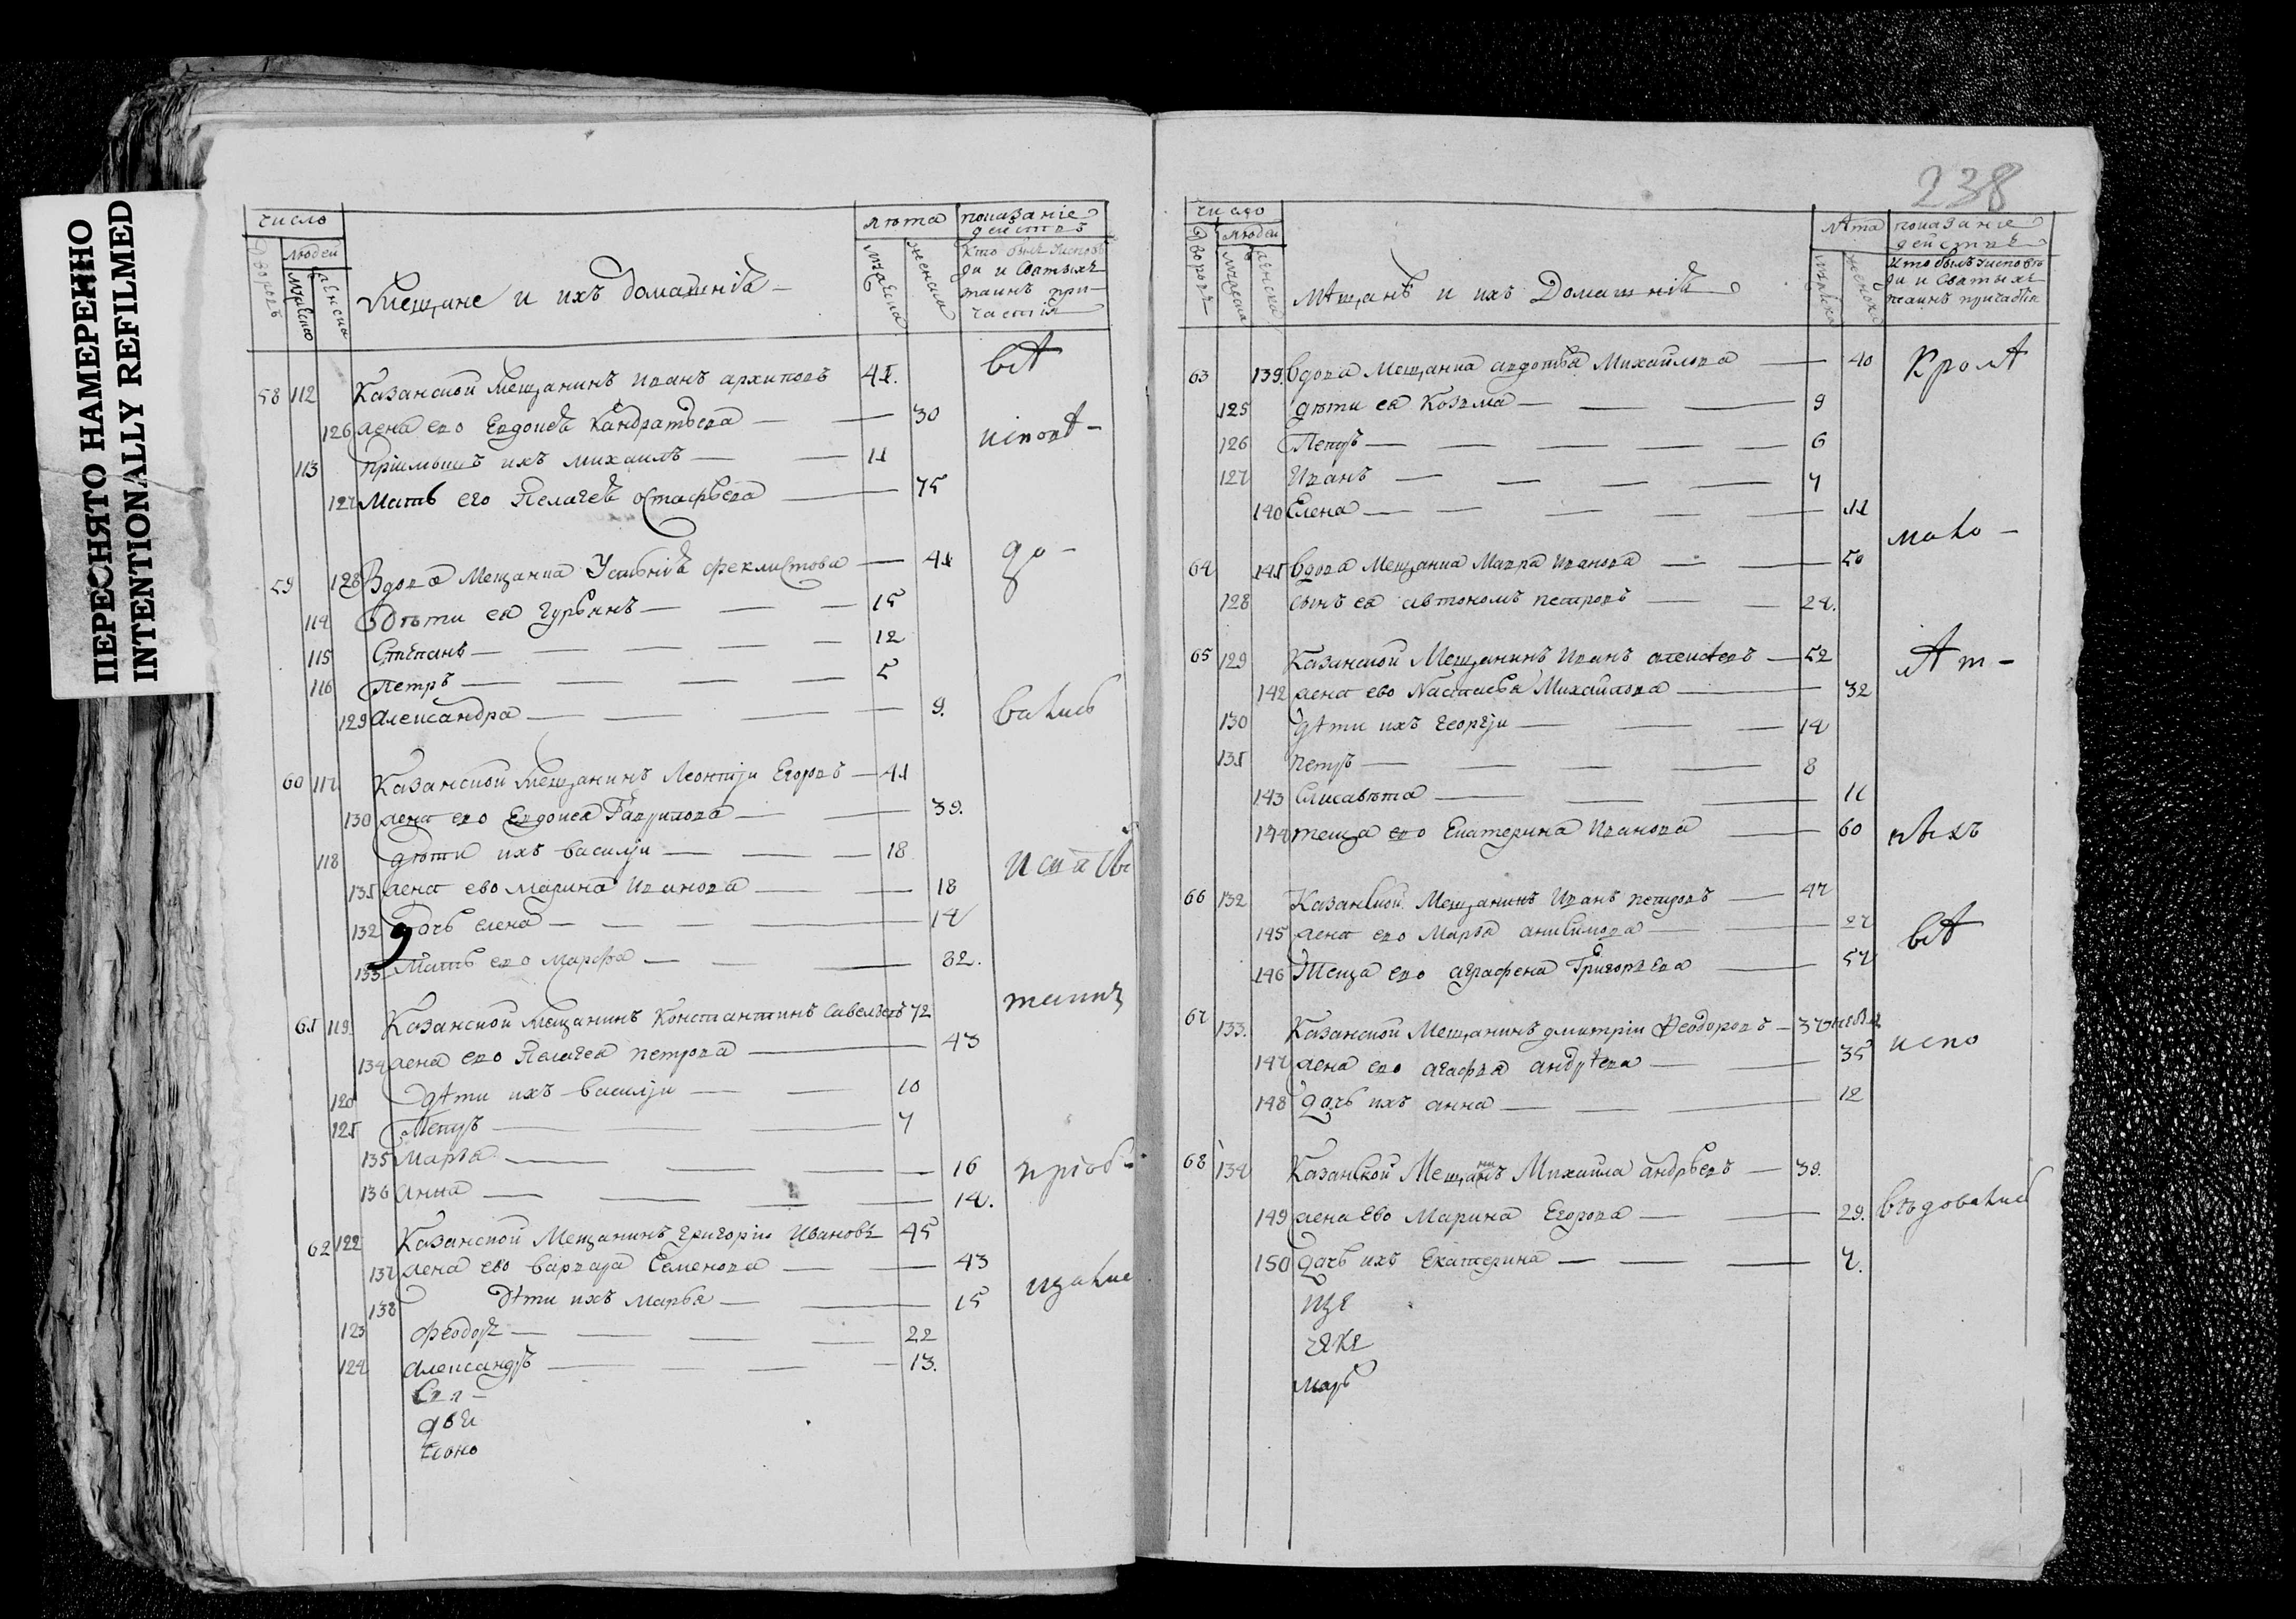 ПЕРЕСНЯТО НАМЕРЕННО
INTENTIONALLY REFILMED
число
людей
лѣта
показаніе
действъ
мещане и ихъ домашнія
58 112 Казанской мещанинъ иванъ архиповъ 41.
всѣ
126 жена ево Евдокия Кандратьева 30
исповѣ-
113 приимышъ ихъ михаилъ 11
127 Мать его Пелагея Остафьева 75
59 128 Вдова Мещанка Устинія феклистова 41
до-
114 дѣти ея гурьянъ 15
115 Степанъ 12
116 Петръ 5
129 александра 9.
вались
60 117 Казанской мещанинъ Леонтіи Егоровъ 41
130 жена ево Евдокея Гаврилова 39.
118 дѣти ихъ василіи 18
131 жена ево марина иванова 18
132 дочь елена 14
133 Мать ево марфа 82.
61 119. Казанской мещанинъ Константинъ савельевъ 72
таинъ
134 жена ево Пелагея петрова 43
120 дѣти ихъ василіи 10
121 Петръ 7
135 марья 16
пріоб
136 анна 14.
62 122 Казанской Мещанинъ григорій Ивановъ 45
137 жена ево варвара Семенова 43
138 дѣти ихъ марья 15
щались
123 феодоръ 22
124 александръ 13.
Свя-
238
число
людей
лѣта
показаніе
действъ
Мѣщанѣ и ихъ Домашнія
63 139. вдова Мещанка авдотья Михайлова 40
Кромѣ
125 дѣти ея Козма 9
126 Петръ 6
127 Иванъ 4
140 Елена 11
мало-
64 141 вдова Мещанка Мавра Иванова 50
128 сынъ ея автономъ петровъ 24.
65 129 Казанской Мещанинъ Иванъ алексѣевъ 52
лѣт-
142 жена ево Настасья Михайлова 32
130 дѣти ихъ георгіи 14
131 петръ 8
143 Елисавѣта 11
144 теща ево Екатерина Иванова 60
ныхъ
66 132 Казанской Мещанинъ Иванъ петровъ 47
145 жена ево Марья анисимова 27
всѣ
146 Теща ево аграфена Григорьева 57
67 133. Казанской Мещанинъ дмитріи Феодоровъ 37
испо
147 жена ево агафья андрѣева 35
148 дочь ихъ анна 12
68 134 Казанской Мещанинъ Михаила андрѣевъ 39.
149 жена ево Марина Егорова 29.
вѣдовались
150 дочь ихъ Екатерина 7.